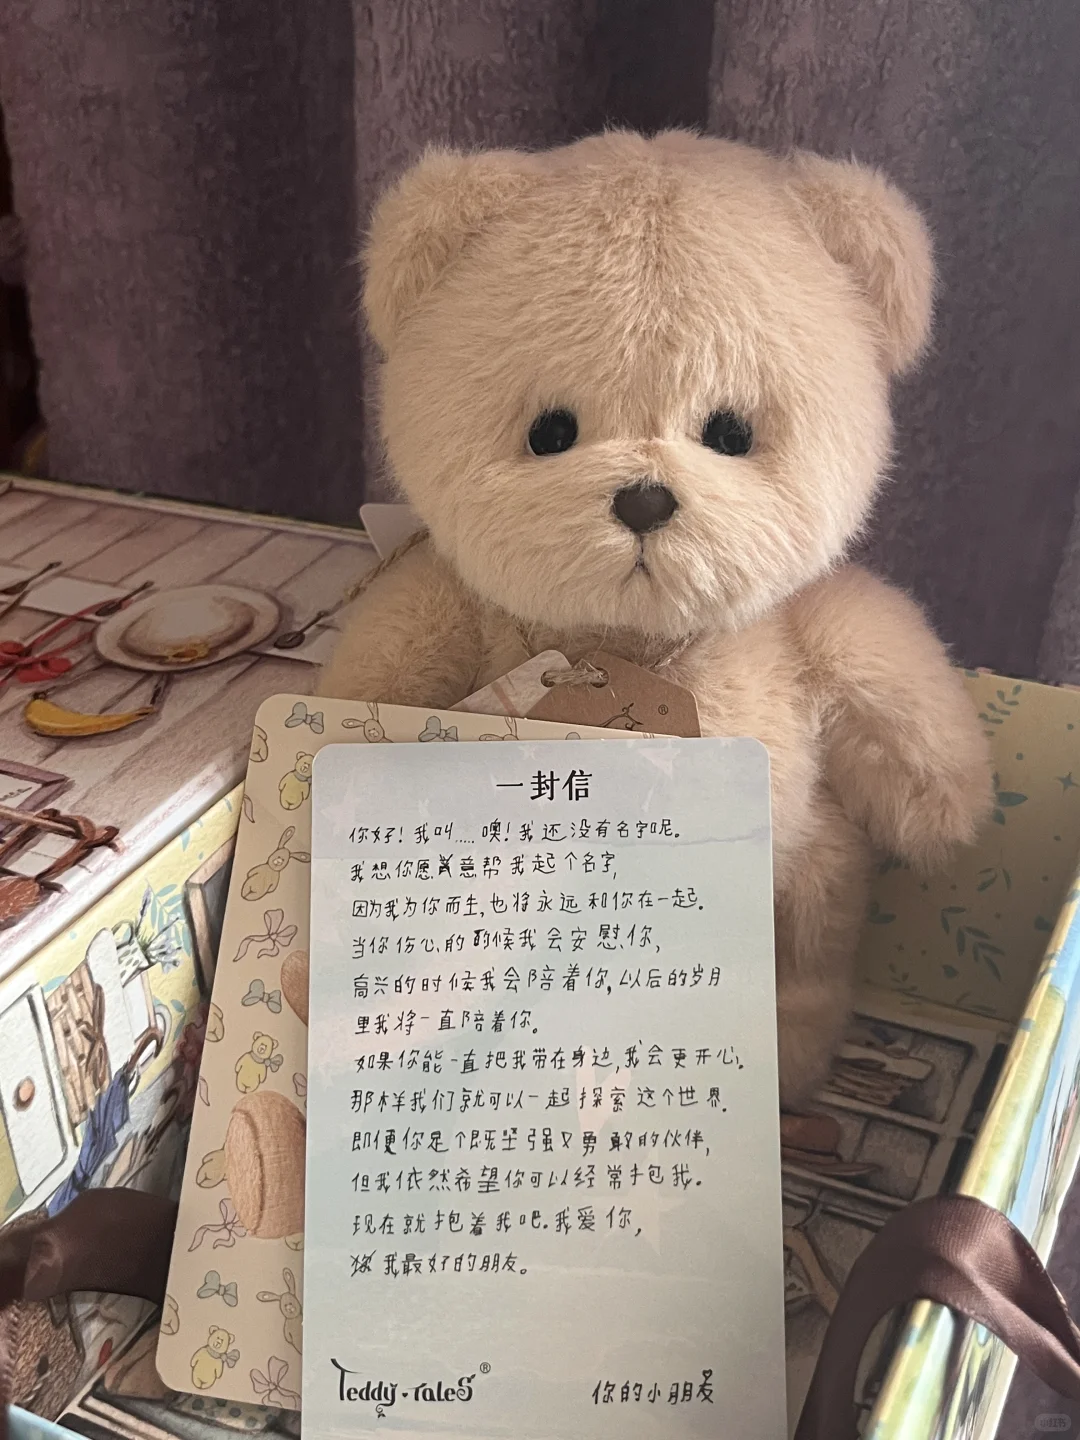 一封信
你好！我叫.....噢！我还没有名字呢。
我想你愿意帮我起个名字，
因为我为你而生，也将永远和你在一起。
当你伤心的时候我会安慰你，
高兴的时候我会陪着你，以后的岁月
里我将一直陪着你。
如果你能一直把我带在身边，我会更开心。
那样我们就可以一起探索这个世界。
即便你是个既坚强又勇敢的伙伴，
但我依然希望你可以经常抱我。
现在就抱着我吧。我爱你，
我最好的朋友。
Teddy·Tales®
你的小朋友
®